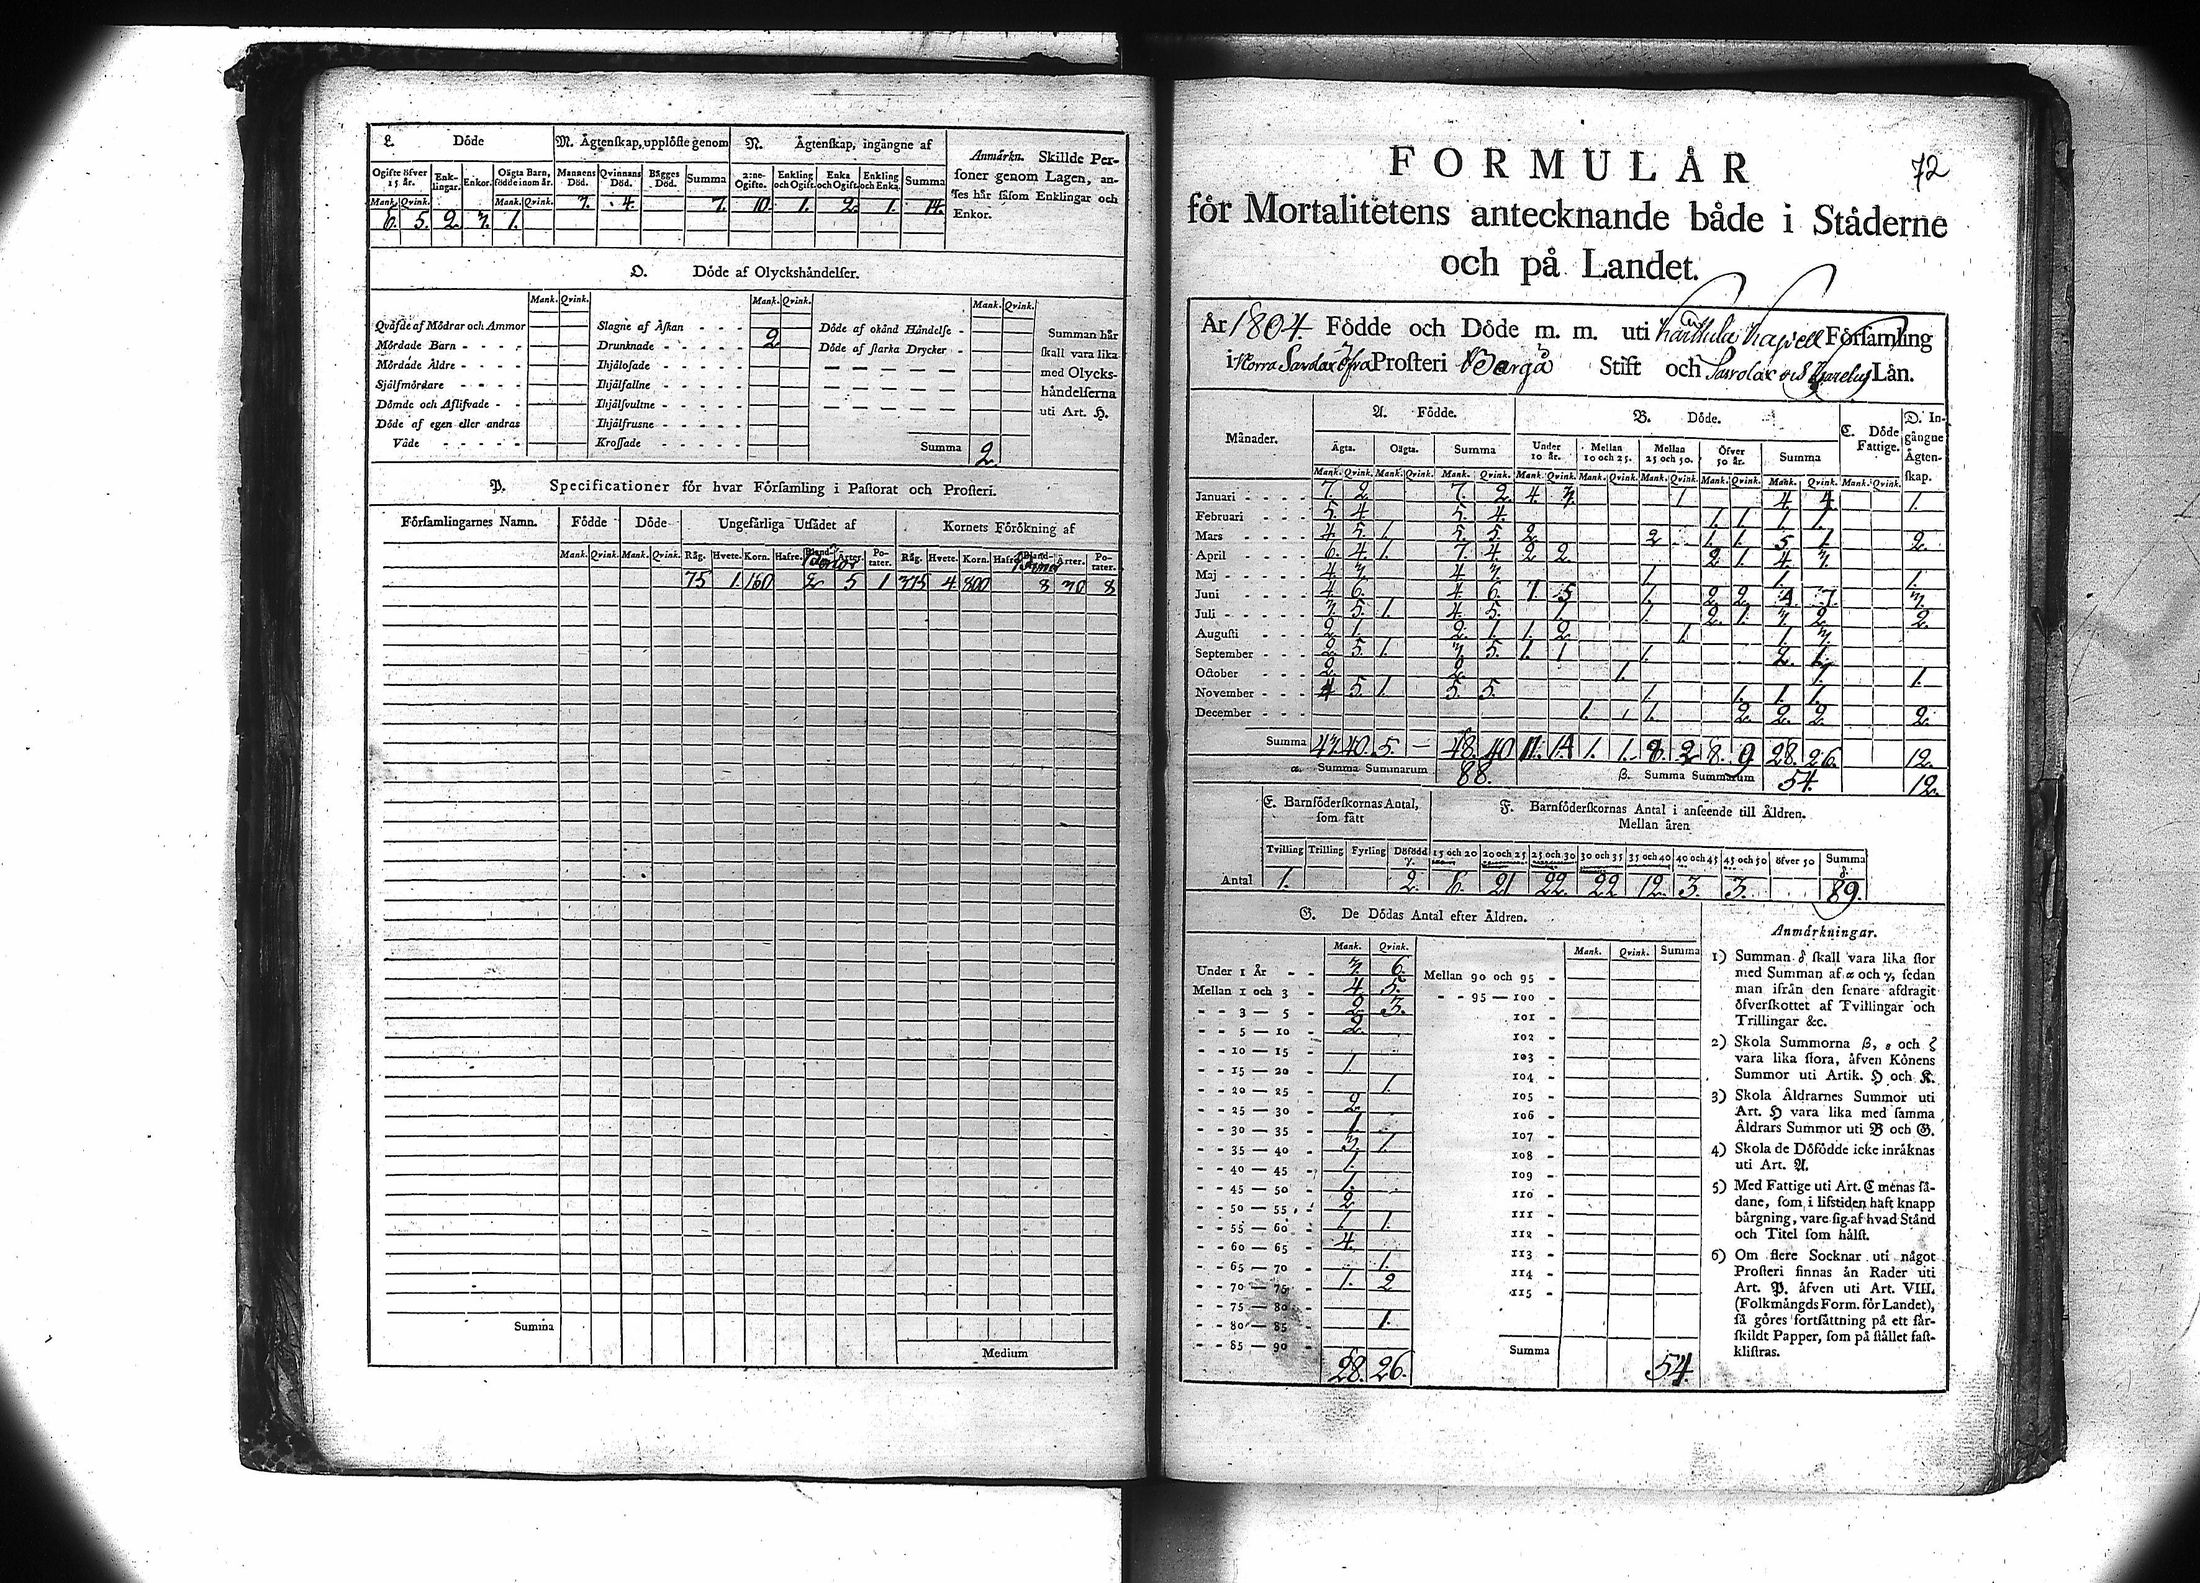 L. Döde
M. Ägtenskap, upplöste genom
N. Ägtenskap, ingångne af
Anmärkn. Skillde Per-
soner genom Lagen, an-
ses här såsom Enklingar och
Enkor.
Ogifte öfver 15 år. Enk-lingar. Enkor. Oägta Barn, födde inom år. Mannens Död. Qvinnans Död. Bägges Död. Summa 2:ne Ogifte. Enkling och Ogift. Enka och Ogift. Enkling och Enka. Summa
Mank. Qvink. Mank. Qvink.
7. 4. 7. 10. 1. 2. 1. 14.
6. 5. 2. 3. 1.
O. Döde af Olyckshändelser.
Mank. Qvink. Mank. Qvink. Mank. Qvink.
Qväfde af Mödrar och Ammor
Mördade Barn
Mördade Äldre
Självmördare
Dömde och Aflifvade
Döde af egen eller andras
Våde
Slagne af Åskan
Drunknade 2
Ihjälosade
Ihjälfallne
Ihjälsvultne
Ihjälfrusne
Krossade
Döde af okänd Händelse
Döde af starka Drycker
Summa 2.
Summan här
skall vara lika
med Olycks-
händelserna
uti Art. H.
P. Specificationer för hvar Församling i Pastorat och Prosteri.
Församlingarnes Namn. Födde Döde Ungefärliga Utsädet af Kornets Förökning af
Mank. Qvink. Mank. Qvink. Råg. Hvete. Korn. Hafre. Bland- Ärter. Po-tater. Råg. Hvete. Korn. Hafre. Bland- Ärter. Po-tater.
75 1 160 2 5 1 375 4 800 8 30 8
Summa
Medium
72
FORMULÄR
för Mortalitetens antecknande både i Städerne
och på Landet.
År 1804. Födde och Döde m. m. uti Karttula Kapell Församling
i Norra Savolax öfra Prosteri Borgå Stift och Savolax och Karelns Län.
Månader. A. Födde. B. Döde. C. Döde Fattige. D. In-gångne Ägten-skap.
Ägta. Oägta. Summa Under 10 år. Mellan 10 och 25. Mellan 25 och 50. Öfver 50 år. Summa
Mank. Qvink. Mank. Qvink. Mank. Qvink. Mank. Qvink. Mank. Qvink. Mank. Qvink. Mank. Qvink. Mank. Qvink. Mank. Qvink.
Januari 7. 2. 7. 2. 4. 3. 1 4. 4. 1.
Februari 5 4. 5. 4. 1. 1. 1. 1.
Mars 4 5. 1. 5. 5. 2. 2 1. 1. 5 1. 2.
April 6. 4. 1. 7. 4. 2 2. 2 1. 4. 3.
Maj 4. 3. 4. 3. 1. 1. 1.
Juni 4 6. 4. 6. 1. 5 1. 2 2. 4. 7. 3.
Juli 3 5. 1. 4. 5. 1. 1. 2. 1. 3. 2. 2.
Augusti 2 1. 2. 1. 1. 2. 1. 1. 3.
September 2. 5. 1. 3. 5. 1. 1 1. 2. 1.
October 2. 2. 1. 1. 1.
November 4 5. 1. 5. 5. 1. 1. 1. 1.
December 1. 1. 2. 2. 2. 2.
Summa 43. 40. 5. - 48. 40. 11. 14. 1. 1. 8. 2 8. 9 28. 26. 12.
α. Summa Summarum 88. β. Summa Summarum 54. 12.
E. Barnföderskornas Antal,
som fått
F. Barnföderskornas Antal i anseende till Åldren.
Mellan åren
Tvilling Trilling Fyrling Dödfödd γ. 15 och 20 20 och 25 25 och 30 30 och 35 35 och 40 40 och 45 45 och 50 öfver 50 Summa δ.
Antal 1. 2. 6. 21 22. 22 12. 3. 3. 89.
G. De Dödas Antal efter Åldren.
Mank. Qvink. Mank. Qvink. Summa
Under 1 År 3. 6.
Mellan 1 och 3 4. 5.
3 — 5 2. 3.
5 — 10 2.
10 — 15
15 — 20 1.
20 — 25 1.
25 — 30 2.
30 — 35 1.
35 — 40 3. 1.
40 — 45 1.
45 — 50 1.
50 — 55 2
55 — 60 1. 1.
60 — 65 4.
65 — 70 1.
70 — 75 1. 2
75 — 80
80 — 85 1.
85 — 90
28. 26.
Mellan 90 och 95
95 — 100
101
102
103
104
105
106
107
108
109
110
111
112
113
114
115
Summa 54.
Anmärkningar.
1) Summan δ skall vara lika stor
med Summan af α och γ, sedan
man ifrån den senare afdragit
öfverskottet af Tvillingar och
Trillingar &c.
2) Skola Summorna β, ε och ζ
vara lika stora, äfven Könens
Summor uti Artik. H och K.
3) Skola Åldrarnes Summor uti
Art. H vara lika med samma
Åldrars Summor uti B och G.
4) Skola de Dödfödde icke inräknas
uti Art. A.
5) Med Fattige uti Art. C menas så-
dane, som i lifstiden haft knapp
bärgning, vare sig af hvad Stånd
och Titel som hälst.
6) Om flere Socknar uti något
Prosteri finnas än Rader uti
Art. P. äfven uti Art. VIII.
(Folkmängds Form. för Landet),
så göres fortsättning på ett sär-
skildt Papper, som på stället fast-
klistras.